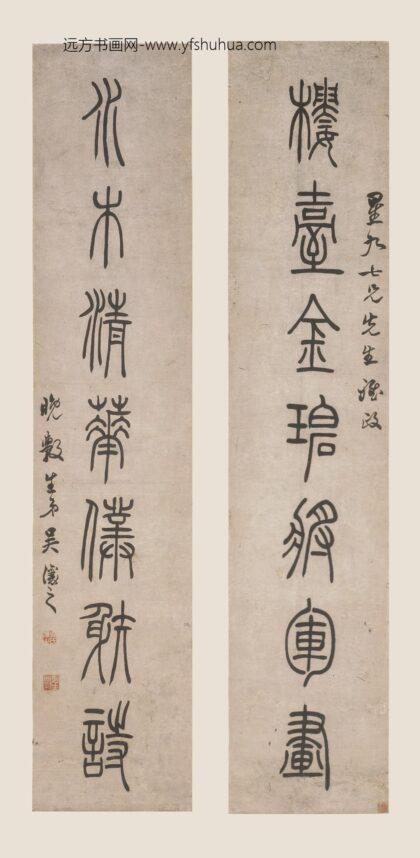 远方书画网-www.yfshuhua.com
樓臺金碧將軍畫
七兄先生雅政
水木清華僕射詩
晚斅生弟吳讓之